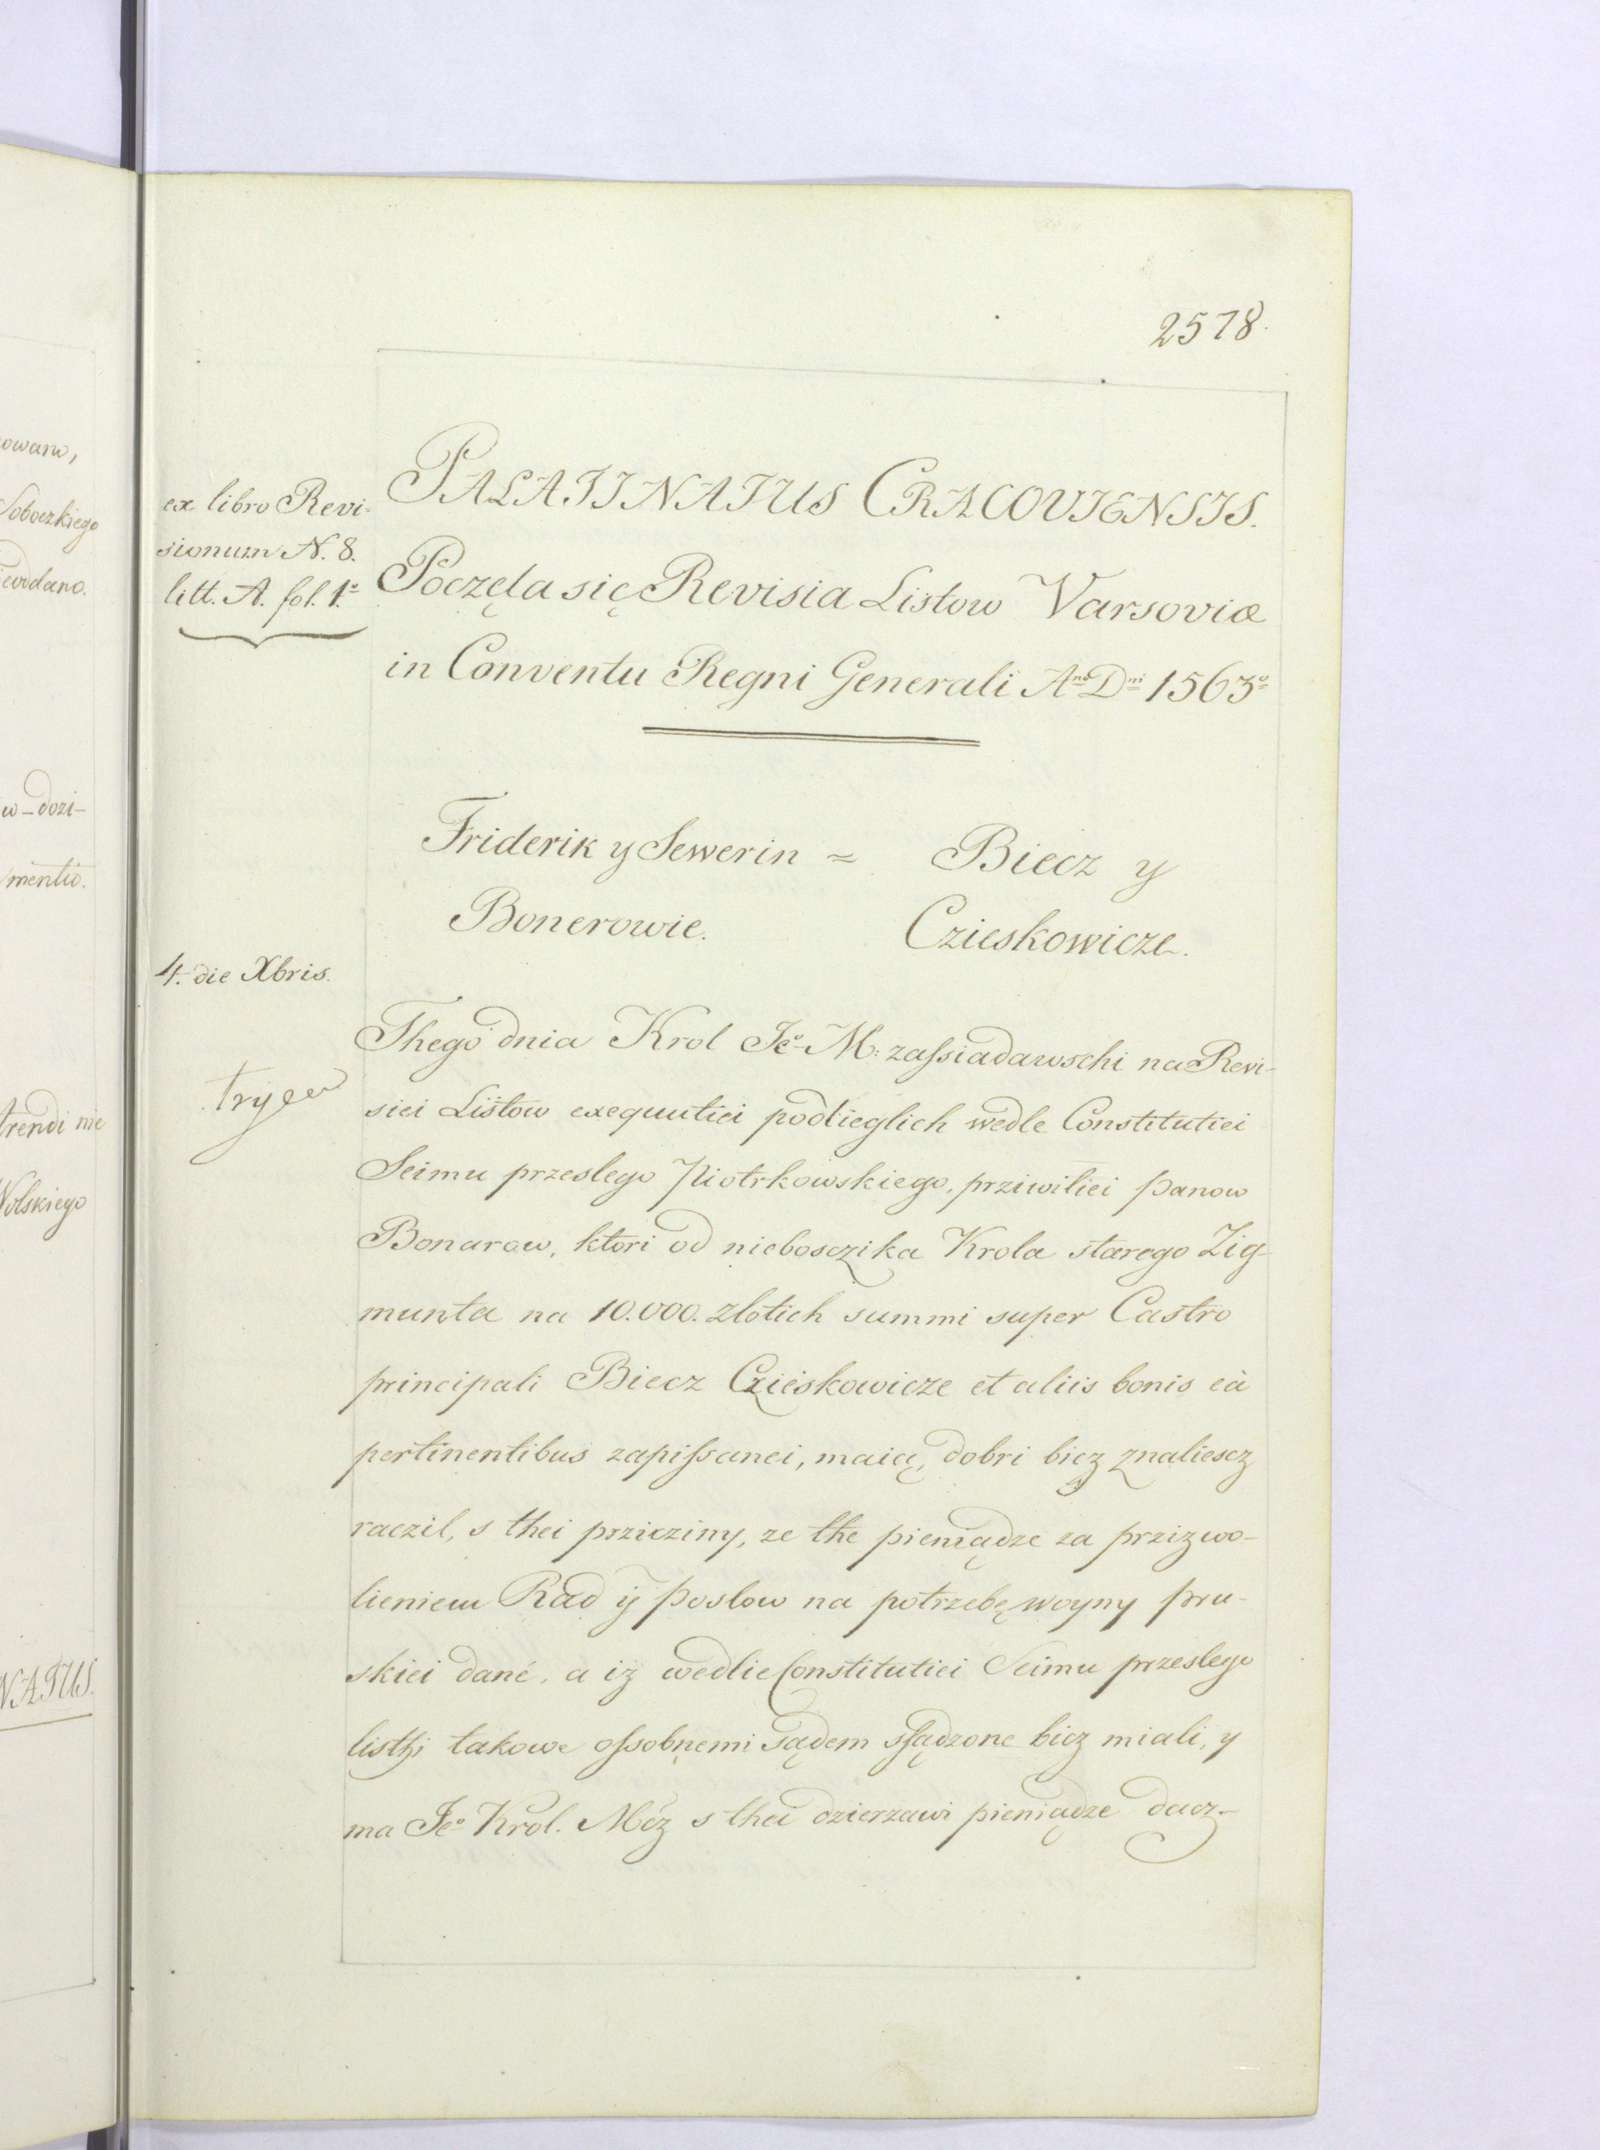 owaru,
Soboczkiego
ieodano.
w-dozi-
mentu.
Arendi nie
Wolskiego
NATUS.
2578.
ex libro Revi-
sionum N. 8.
litt. A. fol. 1º
PALATINATUS CRACOVIENSIS.
Poczęla się Revisia Listow Varsoviæ
in Conventu Regni Generali Anº Dni 1563º
Friderik y Sewerin = Biecz y
Bonerowie. Czieskowicze.
4. die Xbris.
Thego dnia Krol Jeº M: zaſsiadawschi na Revi-
siei Listow exequutiei podlieglich wedle Constitutiei
Seimu przeslego Piotrkowskiego, prziwiliei Panow
Bonarow, ktori od nieboszczika Krola starego Zig-
munta na 10.000. zlotich summi super Castro
principali Biecz Czieskowicze et aliis bonis eà
pertinentibus zapiſsanei, maią, dobri bicz znaliescz
raczil, s thei prziczini, ze the pieniądze za przizwo-
lieniem Rad ÿ Poslow na potrzebę woyny pru-
skiei dané, a iz wedlie Constitutiei Seimu przeslego
listhj takowe oſsobnemi sądem sſądzone bicz miali, y
ma Jeº Krol. Mćz s thei dzierzawi pieniądze dacz